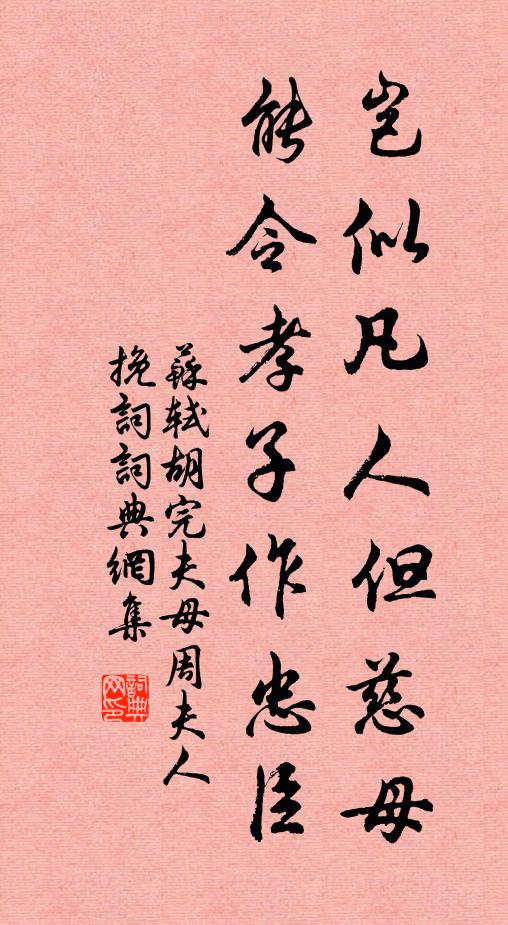 豈似凡人但慈母
能令孝子作忠臣
蘇軾胡完夫母周夫人
挽詞詞典網集
詞典
网印